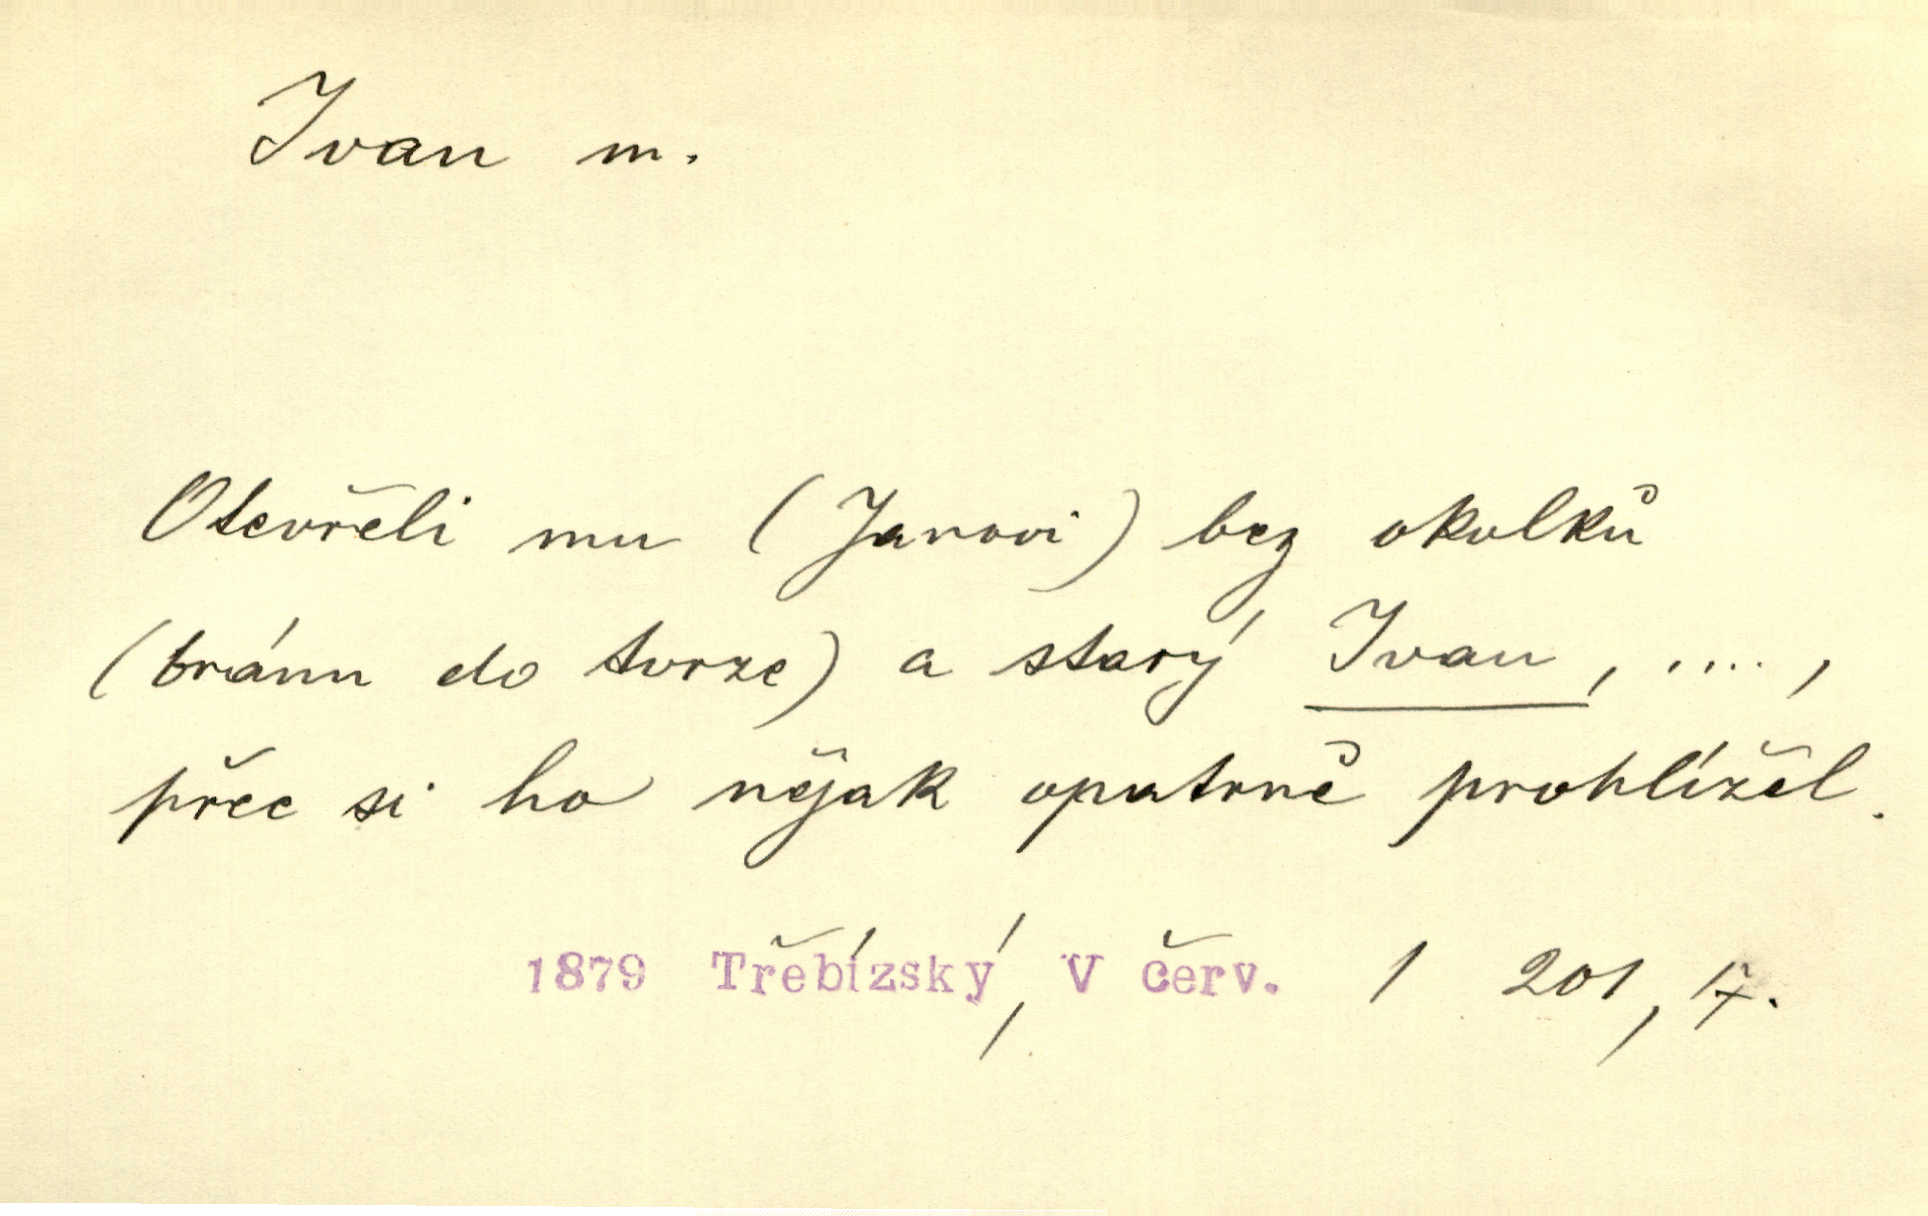 Ivan m.
Otevřeli mu (Janovi) bez okolků
(bránu do tvrze) a starý Ivan, ....,
přec si ho nějak opatrně prohlížel.
1879 Třebízský, V červ. 1 201, 17.